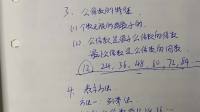 3、公倍数的特征
(1) 个数无限的
(2) 公倍数是最小公倍数的倍数
最小公倍数是公倍数的因数
(12), 24, 36, 48, 60, 72, 84
4、
方法一：列举法